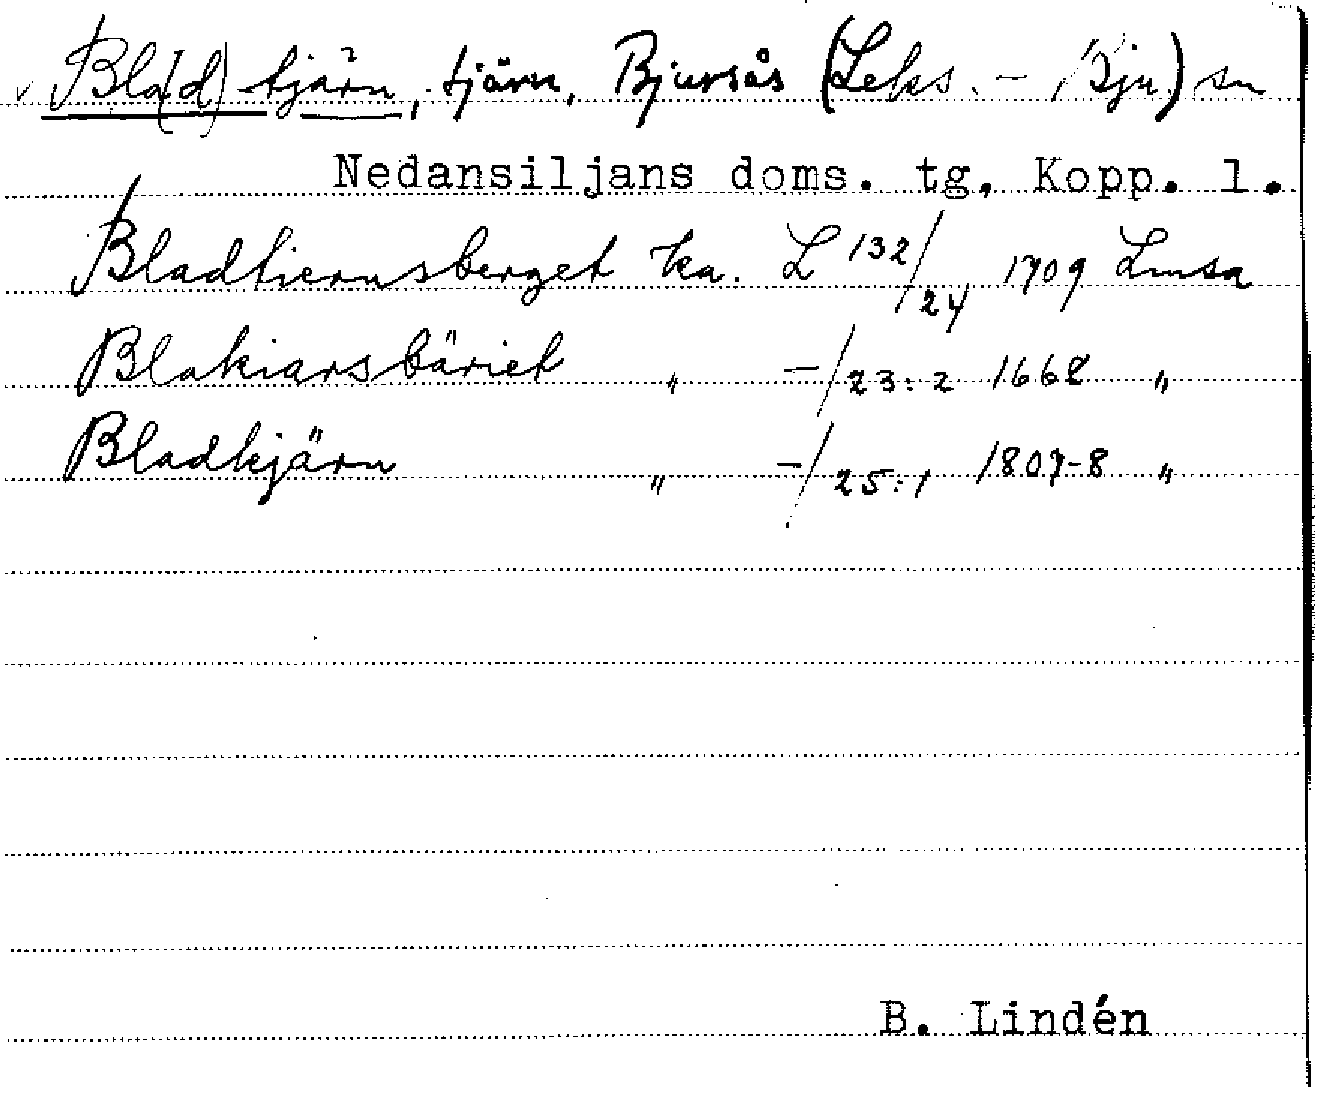 Bla(d)tjärn, tjärn, Bjursås (Leks. - Bju.) sn
Nedansiljans doms. tg. Kopp. l.
Bladtiernsberget ka. L 132/24 1709 Lmsa
Blakiarsbäriet " -/23:2 1668 "
Bladkjärn " -/25:1 1807-8 "
B. Lindén